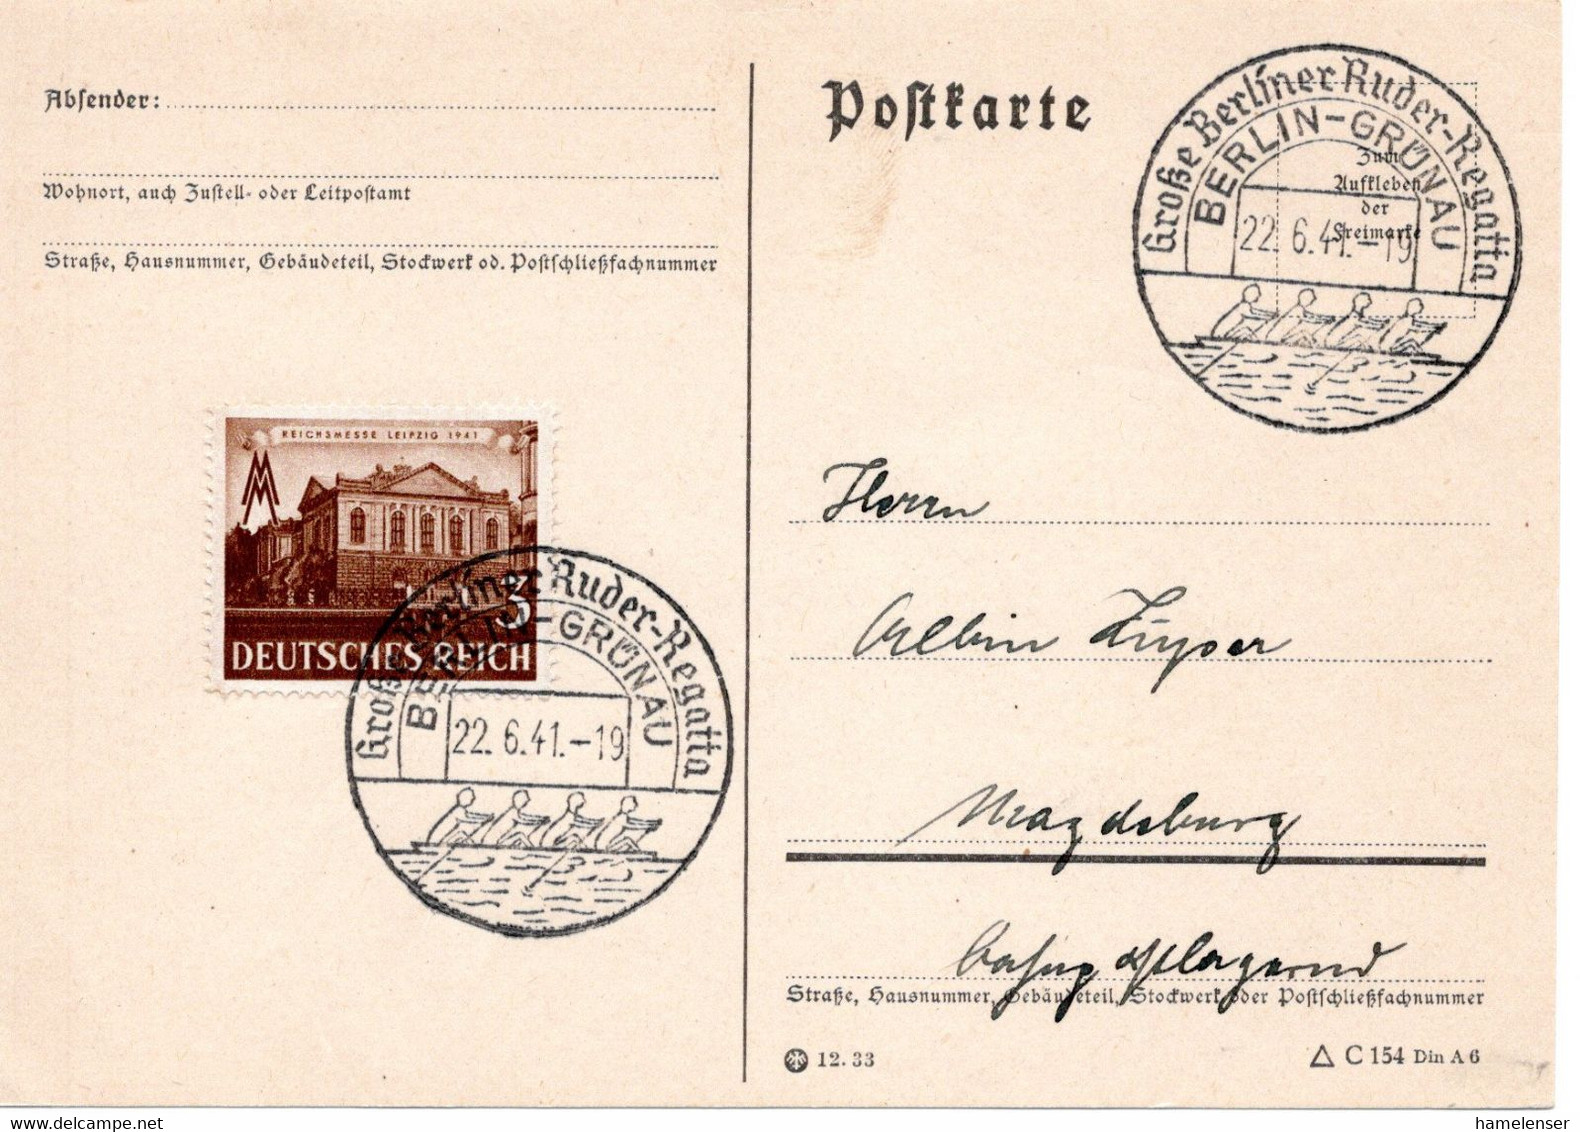 Absender:
Wohnort, auch Zustell- oder Leitpostamt
Straße, Hausnummer, Gebäudeteil, Stockwerk od. Postschließfachnummer
REICHSMESSE LEIPZIG 1941
MM
3
DEUTSCHES REICH
Große Berliner Ruder-Regatta
BERLIN-GRÜNAU
22.6.41.-19
Postkarte
Große Berliner Ruder-Regatta
BERLIN-GRÜNAU
22.6.41.-19
Zum
Aufkleben
der
Freimarke
Herrn
Albin
Magdeburg
Straße, Hausnummer, Gebäudeteil, Stockwerk oder Postschließfachnummer
12. 33
C 154 Din A 6
hamelenser